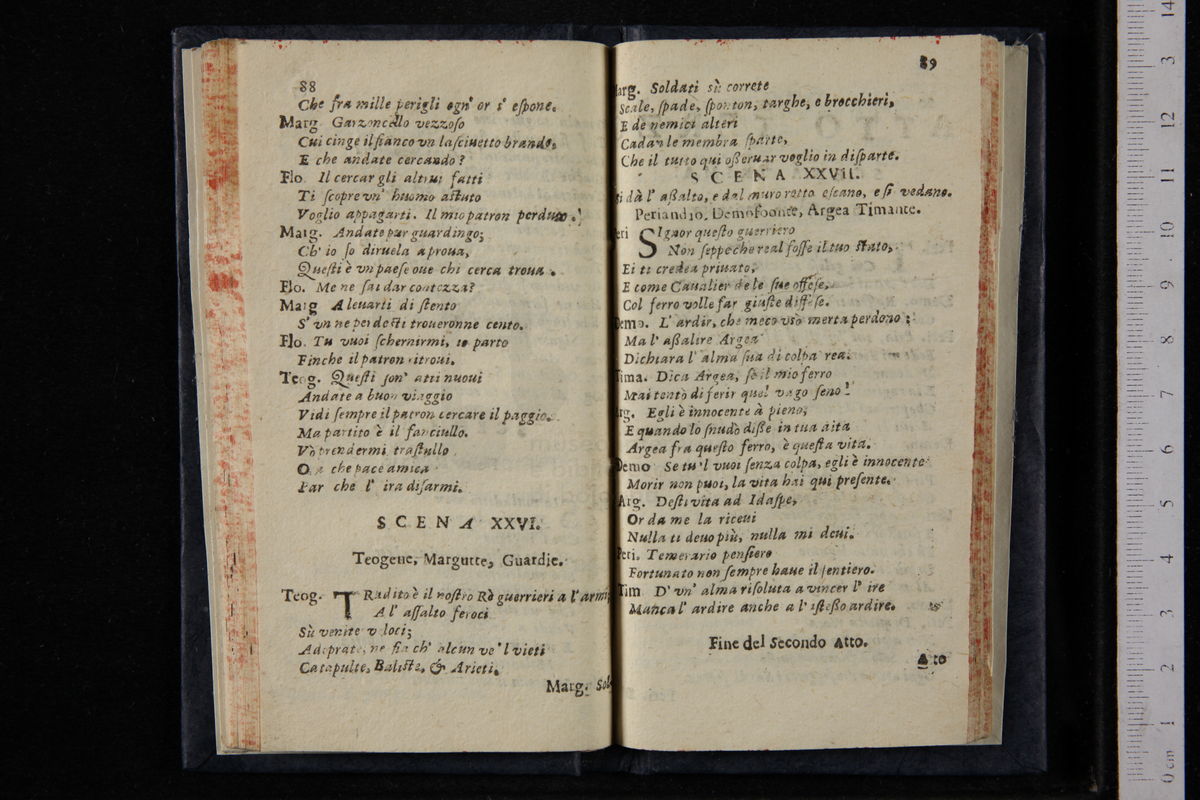 88
Che fra mille perigli ogn' or s' eſpone.
Marg. Garzoncello vezzoſo
Cui cinge il fianco vn laſciuetto brando,
E che andate cercando?
Flo. Il cercar gli altrui fatti
Ti ſcopre vn' huomo aſtuto
Voglio appagarti. Il mio patron perduto.
Marg. Andate pur guardingo;
Ch' io ſo diruela a proua,
Queſti è vn paeſe oue chi cerca troua.
Flo. Me ne ſai dar contezza?
Marg A leuarti di ſtento
S' vn ne perdeſti troueronne cento.
Flo. Tu vuoi ſchernirmi, io parto
Finche il patron ritroui.
Teog. Queſti ſon' atti nuoui
Andate a buon viaggio
Vidi ſempre il patron cercare il paggio.
Ma partito è il fanciullo.
Vò prendermi traſtullo
Ora che pace amica
Par che l' ira diſarmi.
SCENA XXVI.
Teogene, Margutte, Guardie.
Teog. TRadito è il noſtro Rè guerrieri a l' armi,
A l' aſſalto feroci
Sù venite veloci;
Adoprate, ne ſia ch' alcun ve 'l vieti
Catapulte, Baliſte, & Arieti.
Marg. Sol-
89
Marg. Soldati sù correte
Scale, ſpade, ſponton, targhe, e brocchieri,
E de nemici alteri
Cadan le membra ſparte,
Che il tutto qui oſſeruar voglio in diſparte.
SCENA XXVII.
Si dà l' aſſalto, e dal muro rotto eſcano, e ſi vedano.
Periandio, Demofoonte, Argea Timante.
Peri SIgnor queſto guerriero
Non ſeppe che real foſſe il tuo ſtato,
Ei ti credea priuato,
E come Caualier de le ſue offeſe,
Col ferro volle far giuſte diffeſe.
Demo. L' ardir, che meco vsò merta perdono;
Ma l' aſſalire Argea
Dichiara l' alma ſua di colpa rea.
Tima. Dica Argea, ſe il mio ferro
Mai tentò di ferir quel vago ſeno?
Arg. Egli è innocente à pieno,
E quando lo ſnudò diſſe in tua aita
Argea fra queſto ferro, è queſta vita.
Demo Se tu 'l vuoi ſenza colpa, egli è innocente
Morir non puoi, la vita hai qui preſente.
Arg. Deſti vita ad Idaſpe,
Or da me la riceui
Nulla ti deuo più, nulla mi deui.
Peri. Temerario penſiero
Fortunato non ſempre haue il ſentiero.
Tim D' vn' alma riſoluta a vincer l' ire
Manca l' ardire anche a l' iſteſſo ardire.
Fine del Secondo Atto.
Atto